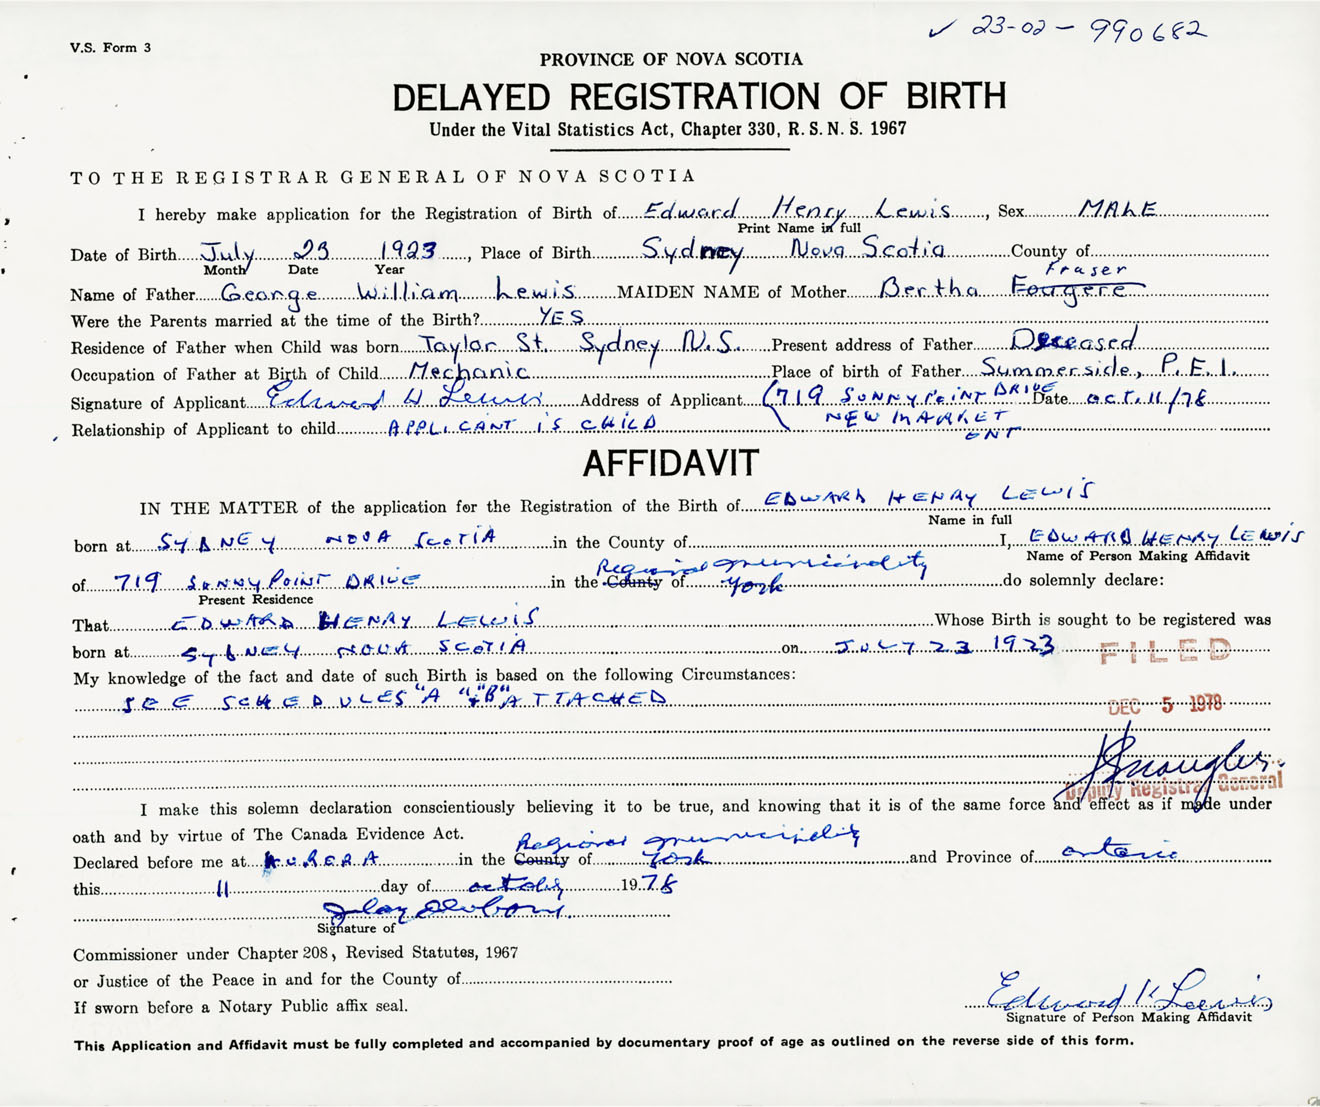 ✓ 23-02-990682
V.S. Form 3
PROVINCE OF NOVA SCOTIA
DELAYED REGISTRATION OF BIRTH
Under the Vital Statistics Act, Chapter 330, R. S. N. S. 1967
TO THE REGISTRAR GENERAL OF NOVA SCOTIA
I hereby make application for the Registration of Birth of Edward Henry Lewis, Sex MALE
Print Name in full
Date of Birth July 23 1923, Place of Birth Sydney Nova Scotia County of
Month Date Year
Fraser
Name of Father George William Lewis MAIDEN NAME of Mother Bertha Fougere
Were the Parents married at the time of the Birth? YES
Residence of Father when Child was born Taylor St. Sydney N.S. Present address of Father Deceased
Occupation of Father at Birth of Child Mechanic Place of birth of Father Summerside, P.E.I.
Signature of Applicant Edward H Lewis Address of Applicant (719 SUNNYPOINT DRIVE Date OCT. 11/78
Relationship of Applicant to child APPLICANT IS CHILD NEWMARKET
ONT
AFFIDAVIT
IN THE MATTER of the application for the Registration of the Birth of EDWARD HENRY LEWIS
Name in full
born at SYDNEY NOVA SCOTIA in the County of I, EDWARD HENRY LEWIS
Name of Person Making Affidavit
Regional municipality
of 719 SUNNYPOINT DRIVE in the County of York do solemnly declare:
Present Residence
That EDWARD HENRY LEWIS Whose Birth is sought to be registered was
born at SYDNEY NOVA SCOTIA on JULY 23 1923
FILED
My knowledge of the fact and date of such Birth is based on the following Circumstances:
SEE SCHEDULES "A" & "B" ATTACHED
DEC 5 1978
Deputy Registrar General
I make this solemn declaration conscientiously believing it to be true, and knowing that it is of the same force and effect as if made under
oath and by virtue of The Canada Evidence Act.
Regional municipality
Declared before me at AURORA in the County of York and Province of Ontario
this 11 day of October 1978
Signature of
Commissioner under Chapter 208, Revised Statutes, 1967
or Justice of the Peace in and for the County of
If sworn before a Notary Public affix seal.
Edward H Lewis
Signature of Person Making Affidavit
This Application and Affidavit must be fully completed and accompanied by documentary proof of age as outlined on the reverse side of this form.